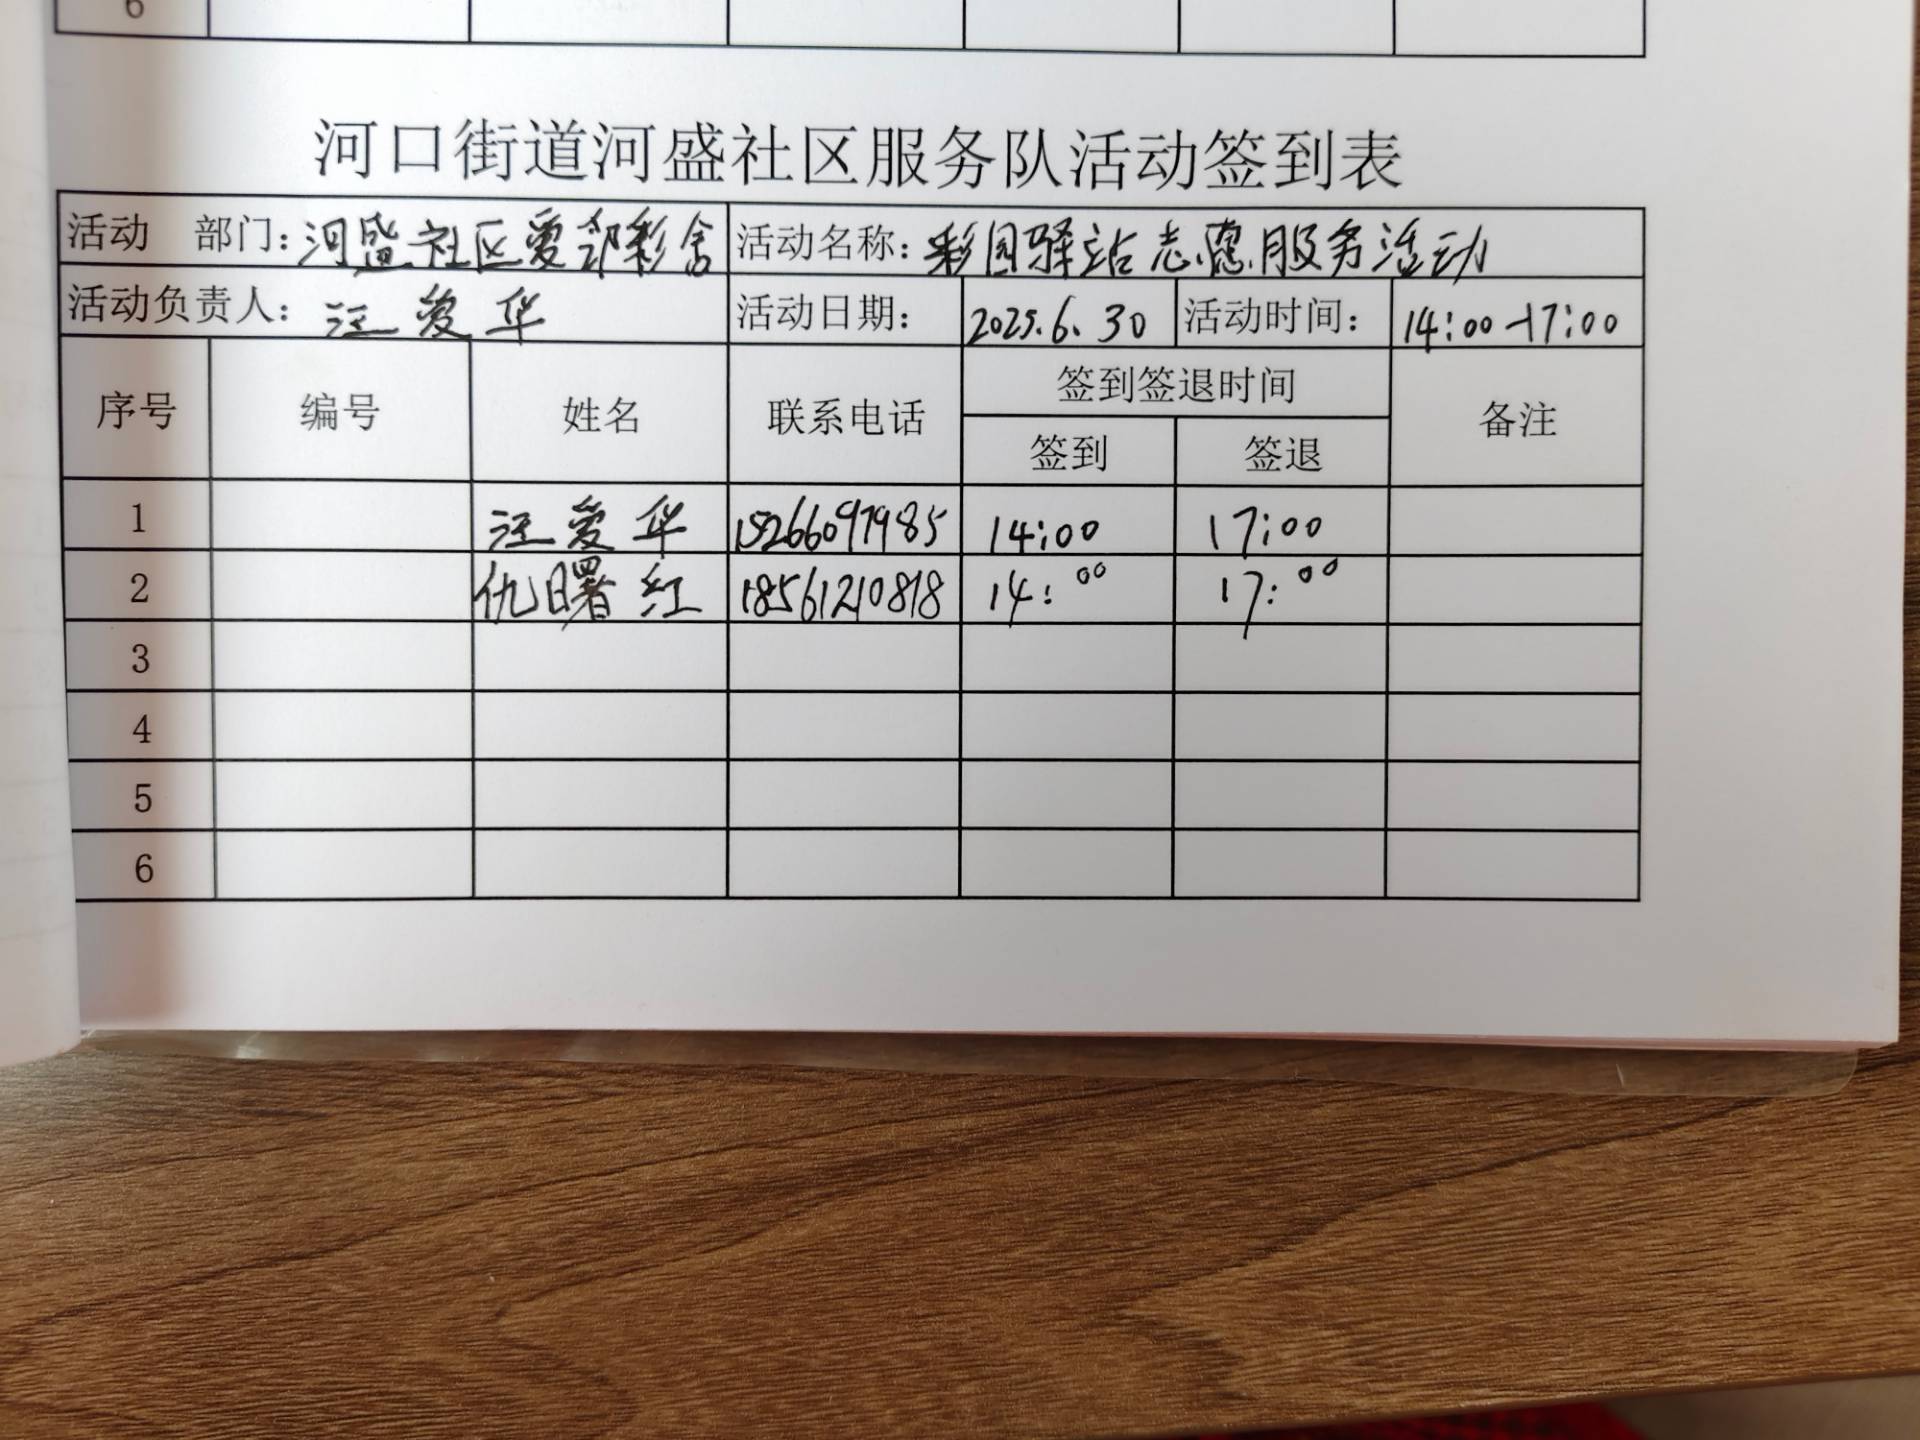 6
河口街道河盛社区服务队活动签到表
活动 部门：河盛社区爱邻彩舍 活动名称：彩园驿站志愿服务活动
活动负责人：汪爱华 活动日期： 2025.6.30 活动时间： 14:00-17:00
序号 编号 姓名 联系电话 签到签退时间 备注
签到 签退
1 汪爱华 15266097985 14:00 17:00
2 仇曙红 18561210818 14:00 17:00
3
4
5
6